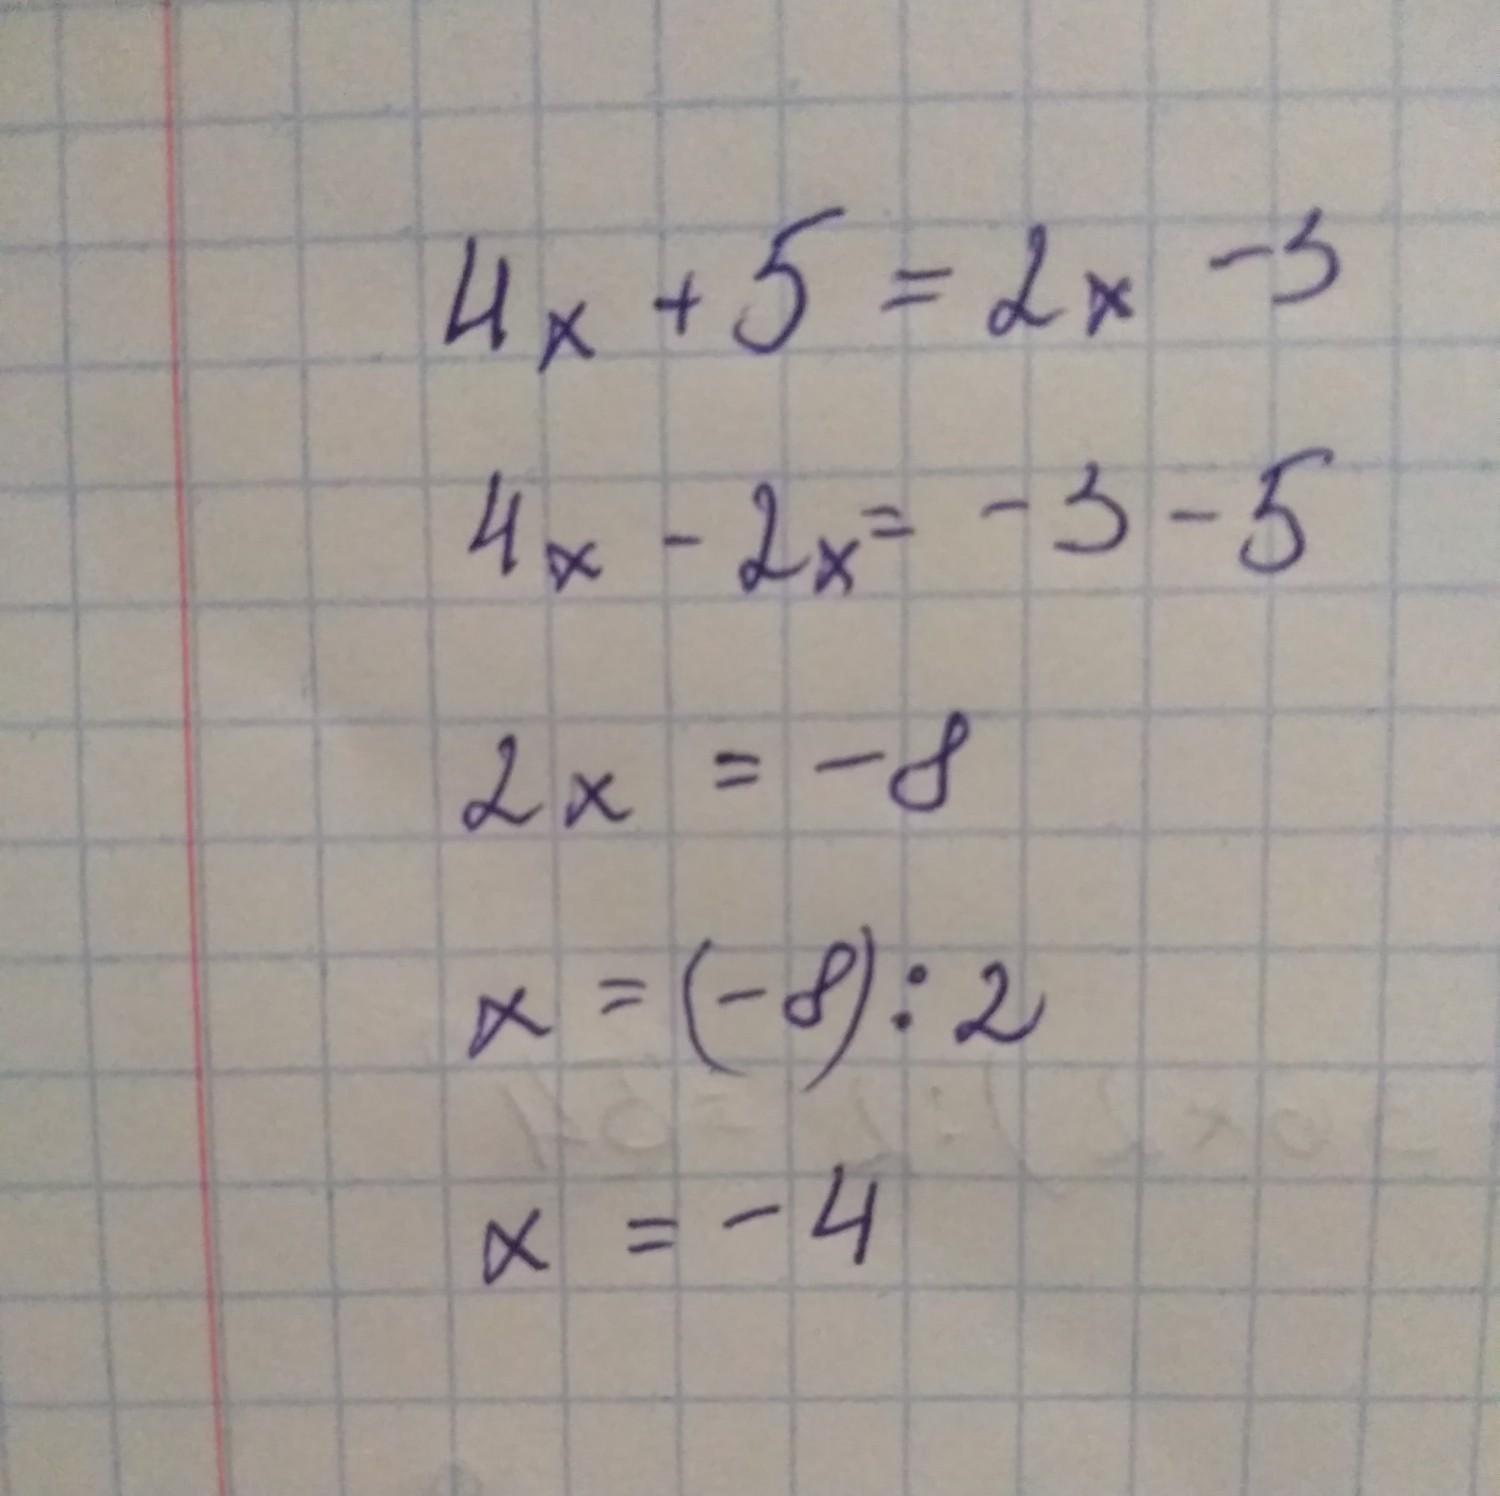 4x + 5 = 2x - 3
4x - 2x = - 3 - 5
2x = - 8
x = (-8) : 2
x = - 4